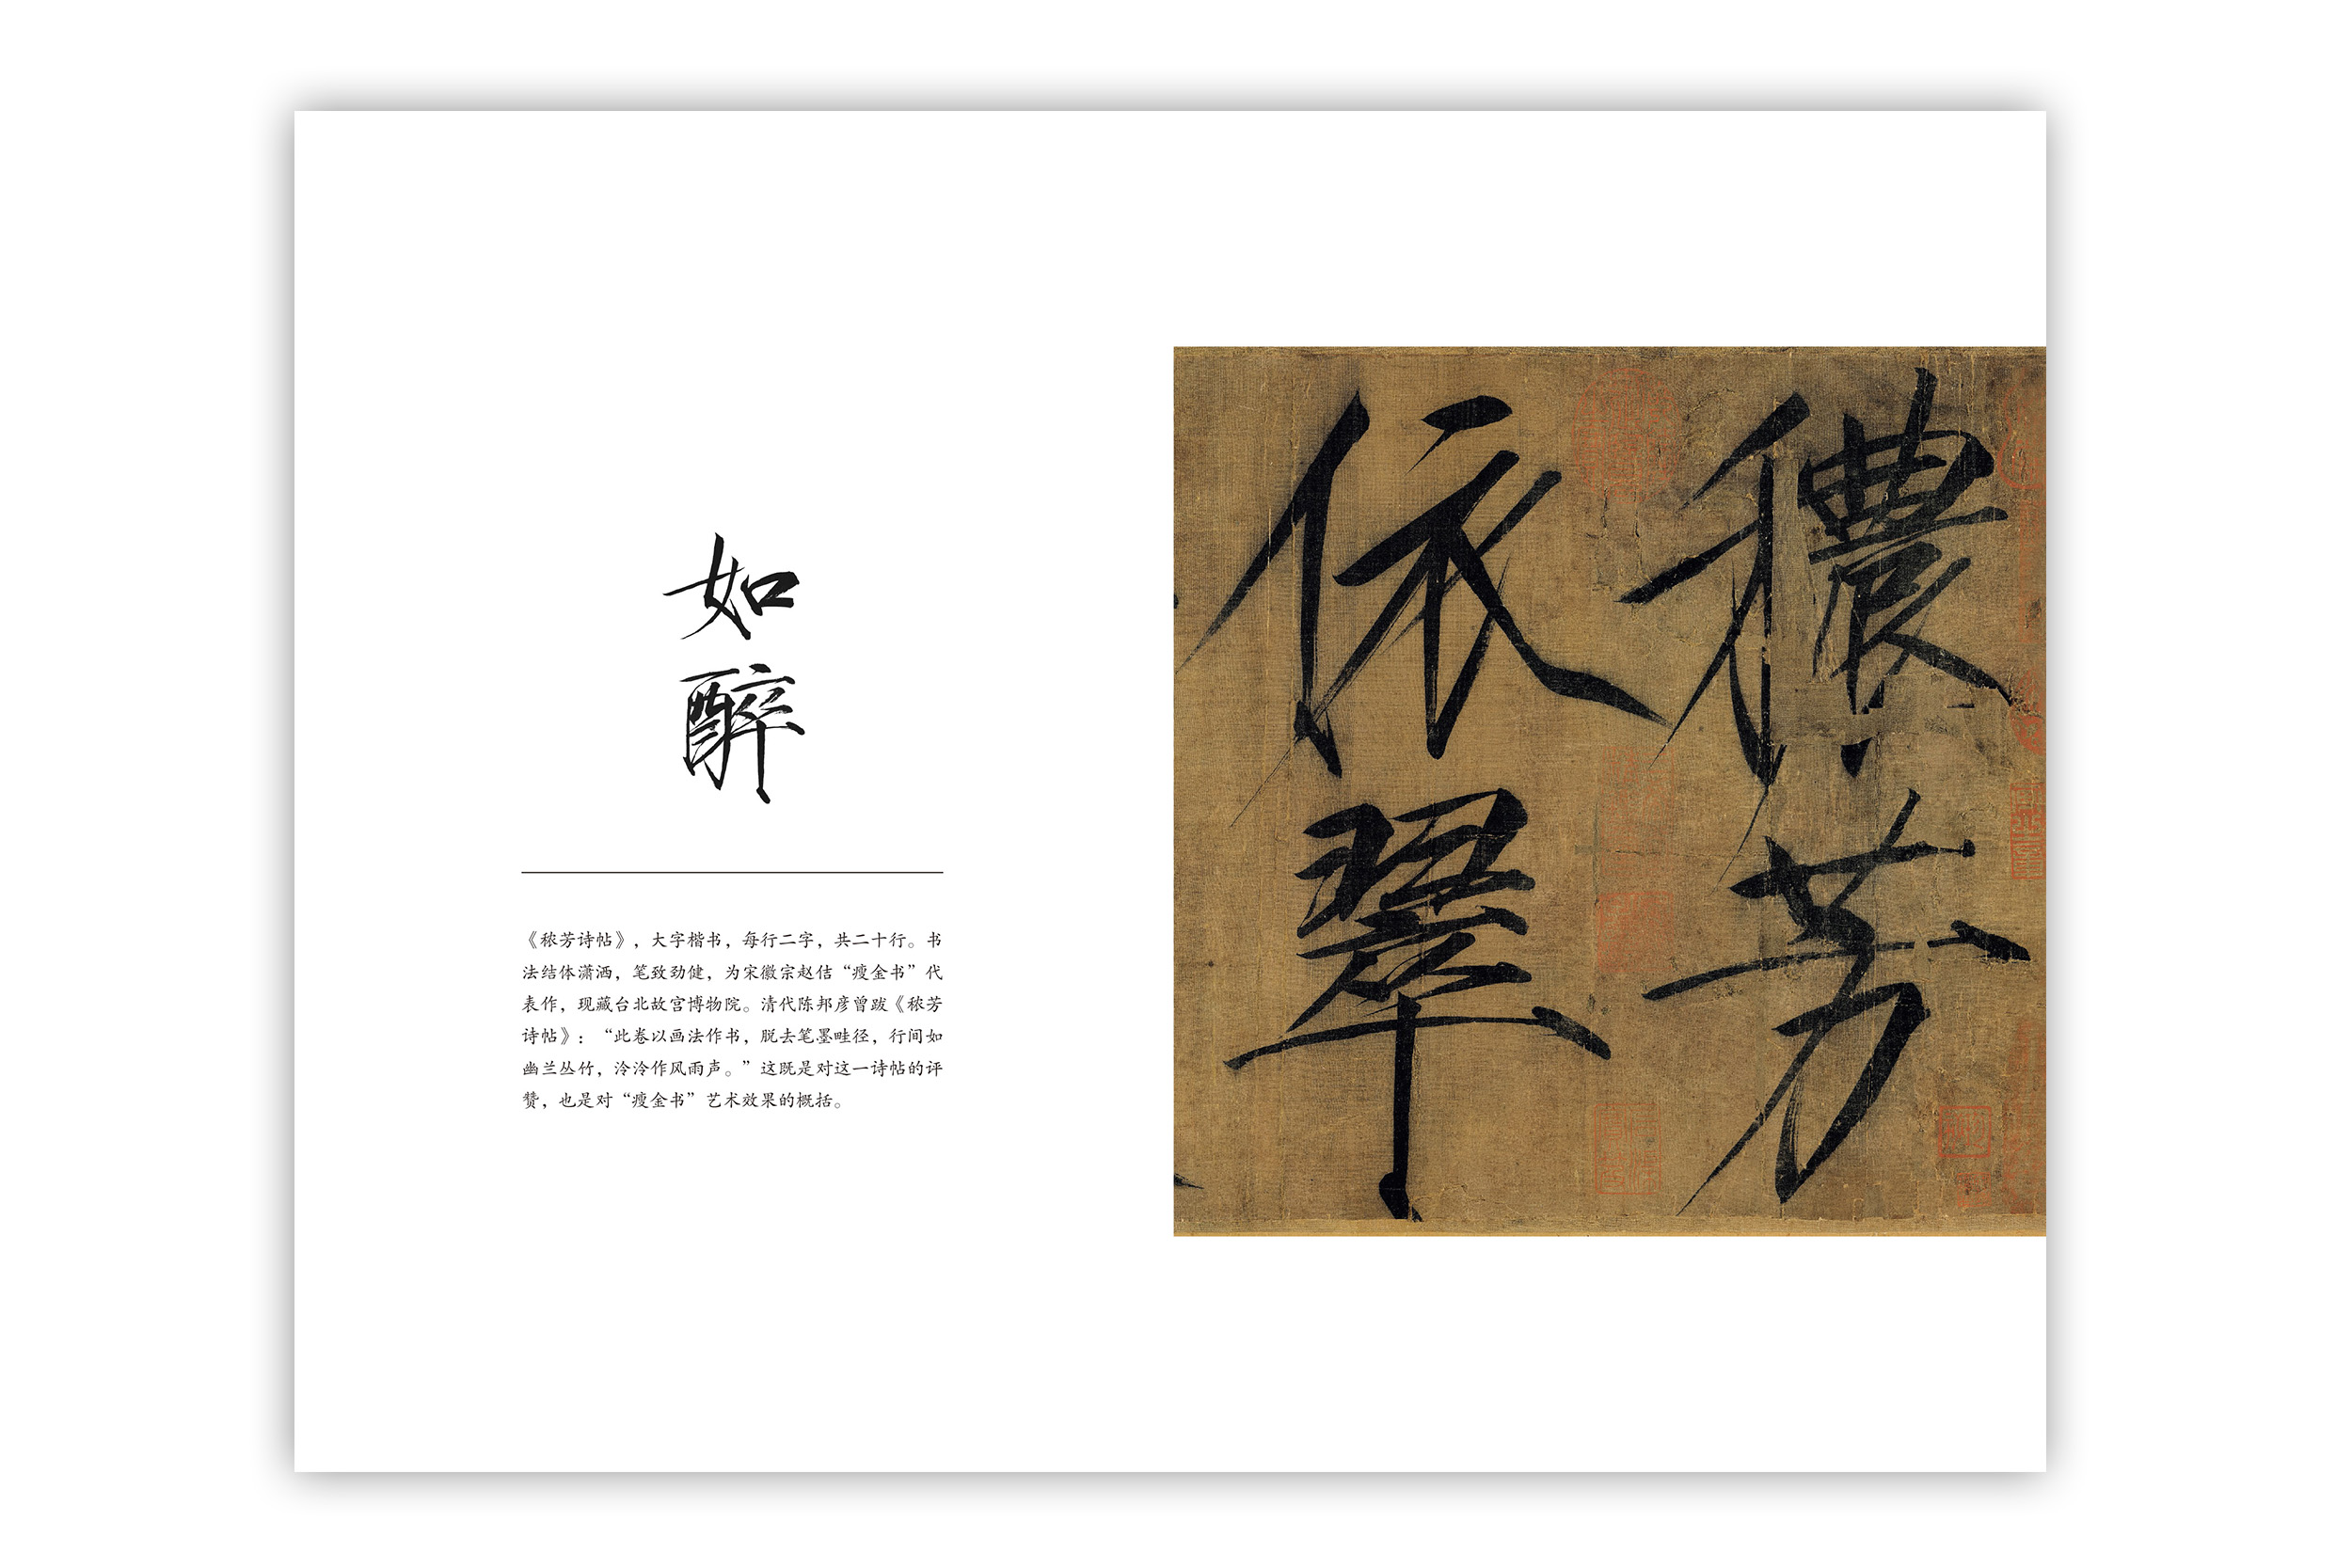 如
醉
《秾芳诗帖》，大字楷书，每行二字，共二十行。书
法结体潇洒，笔致劲健，为宋徽宗赵佶“瘦金书”代
表作，现藏台北故宫博物院。清代陈邦彦曾跋《秾芳
诗帖》：“此卷以画法作书，脱去笔墨畦径，行间如
幽兰丛竹，泠泠作风雨声。”这既是对这一诗帖的评
赞，也是对“瘦金书”艺术效果的概括。
穠芳
依翠